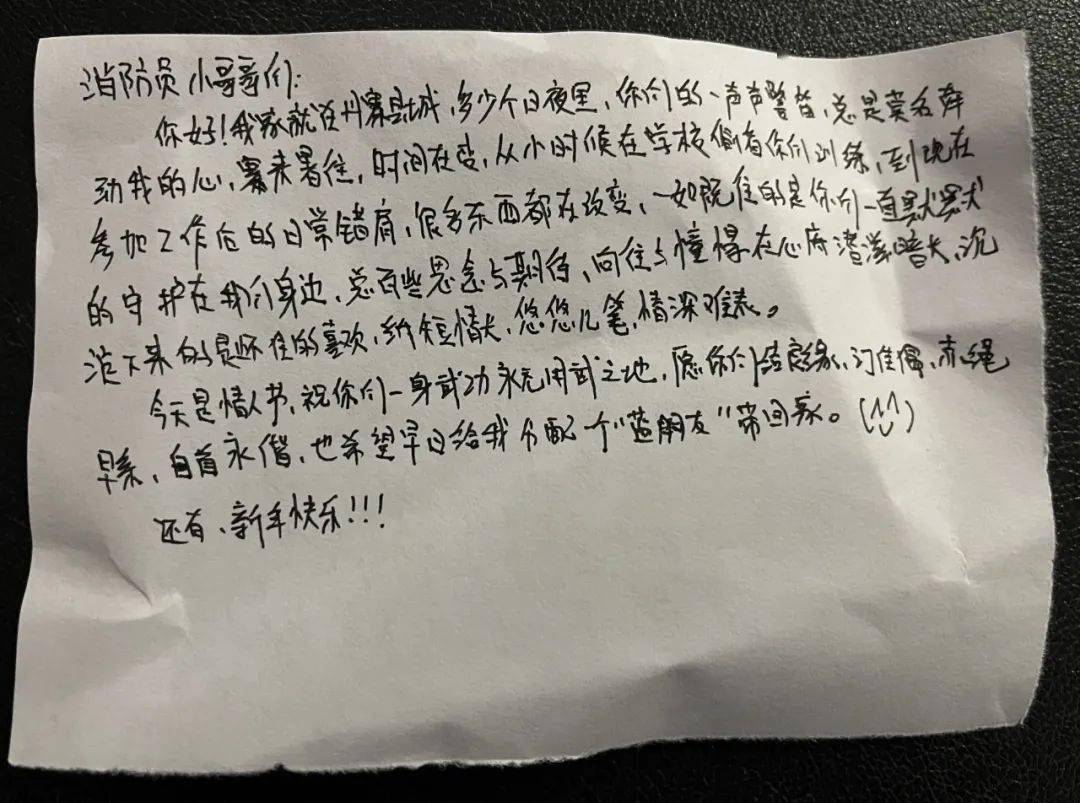 消防员小哥哥们:
你好!我家就住丹寨县城,多少个日夜里,你们的一声声警笛,总是莫名牵
动我的心,寒来暑往,时间在变,从小时候在学校侧看你们训练,到现在
参加工作后的日常错肩,很多东西都在改变,一如既往的是你们一直默默
的守护在我们身边,总有些思念与期待,向往与憧憬在心底潜滋暗长,沉
淀下来的是怀住的喜欢,纸短情长,悠悠几笔,情深难表。
今天是情人节,祝你们一身武功永无用武之地,愿你们结良缘,订佳偶,赤绳
早系,白首永偕,也希望早日给我分配一个"蓝朋友"带回家。(^^)
还有、新年快乐!!!